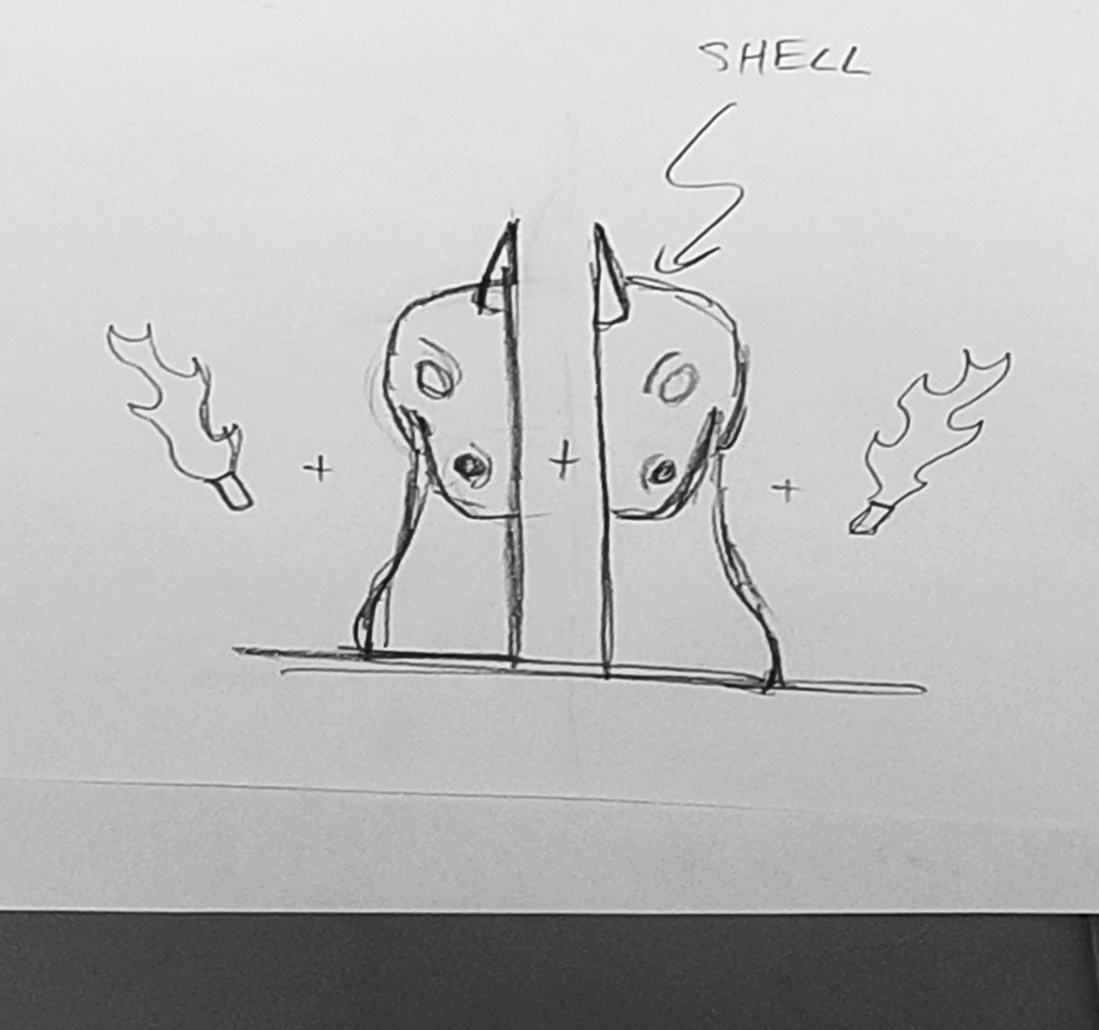 SHELL
+ + +